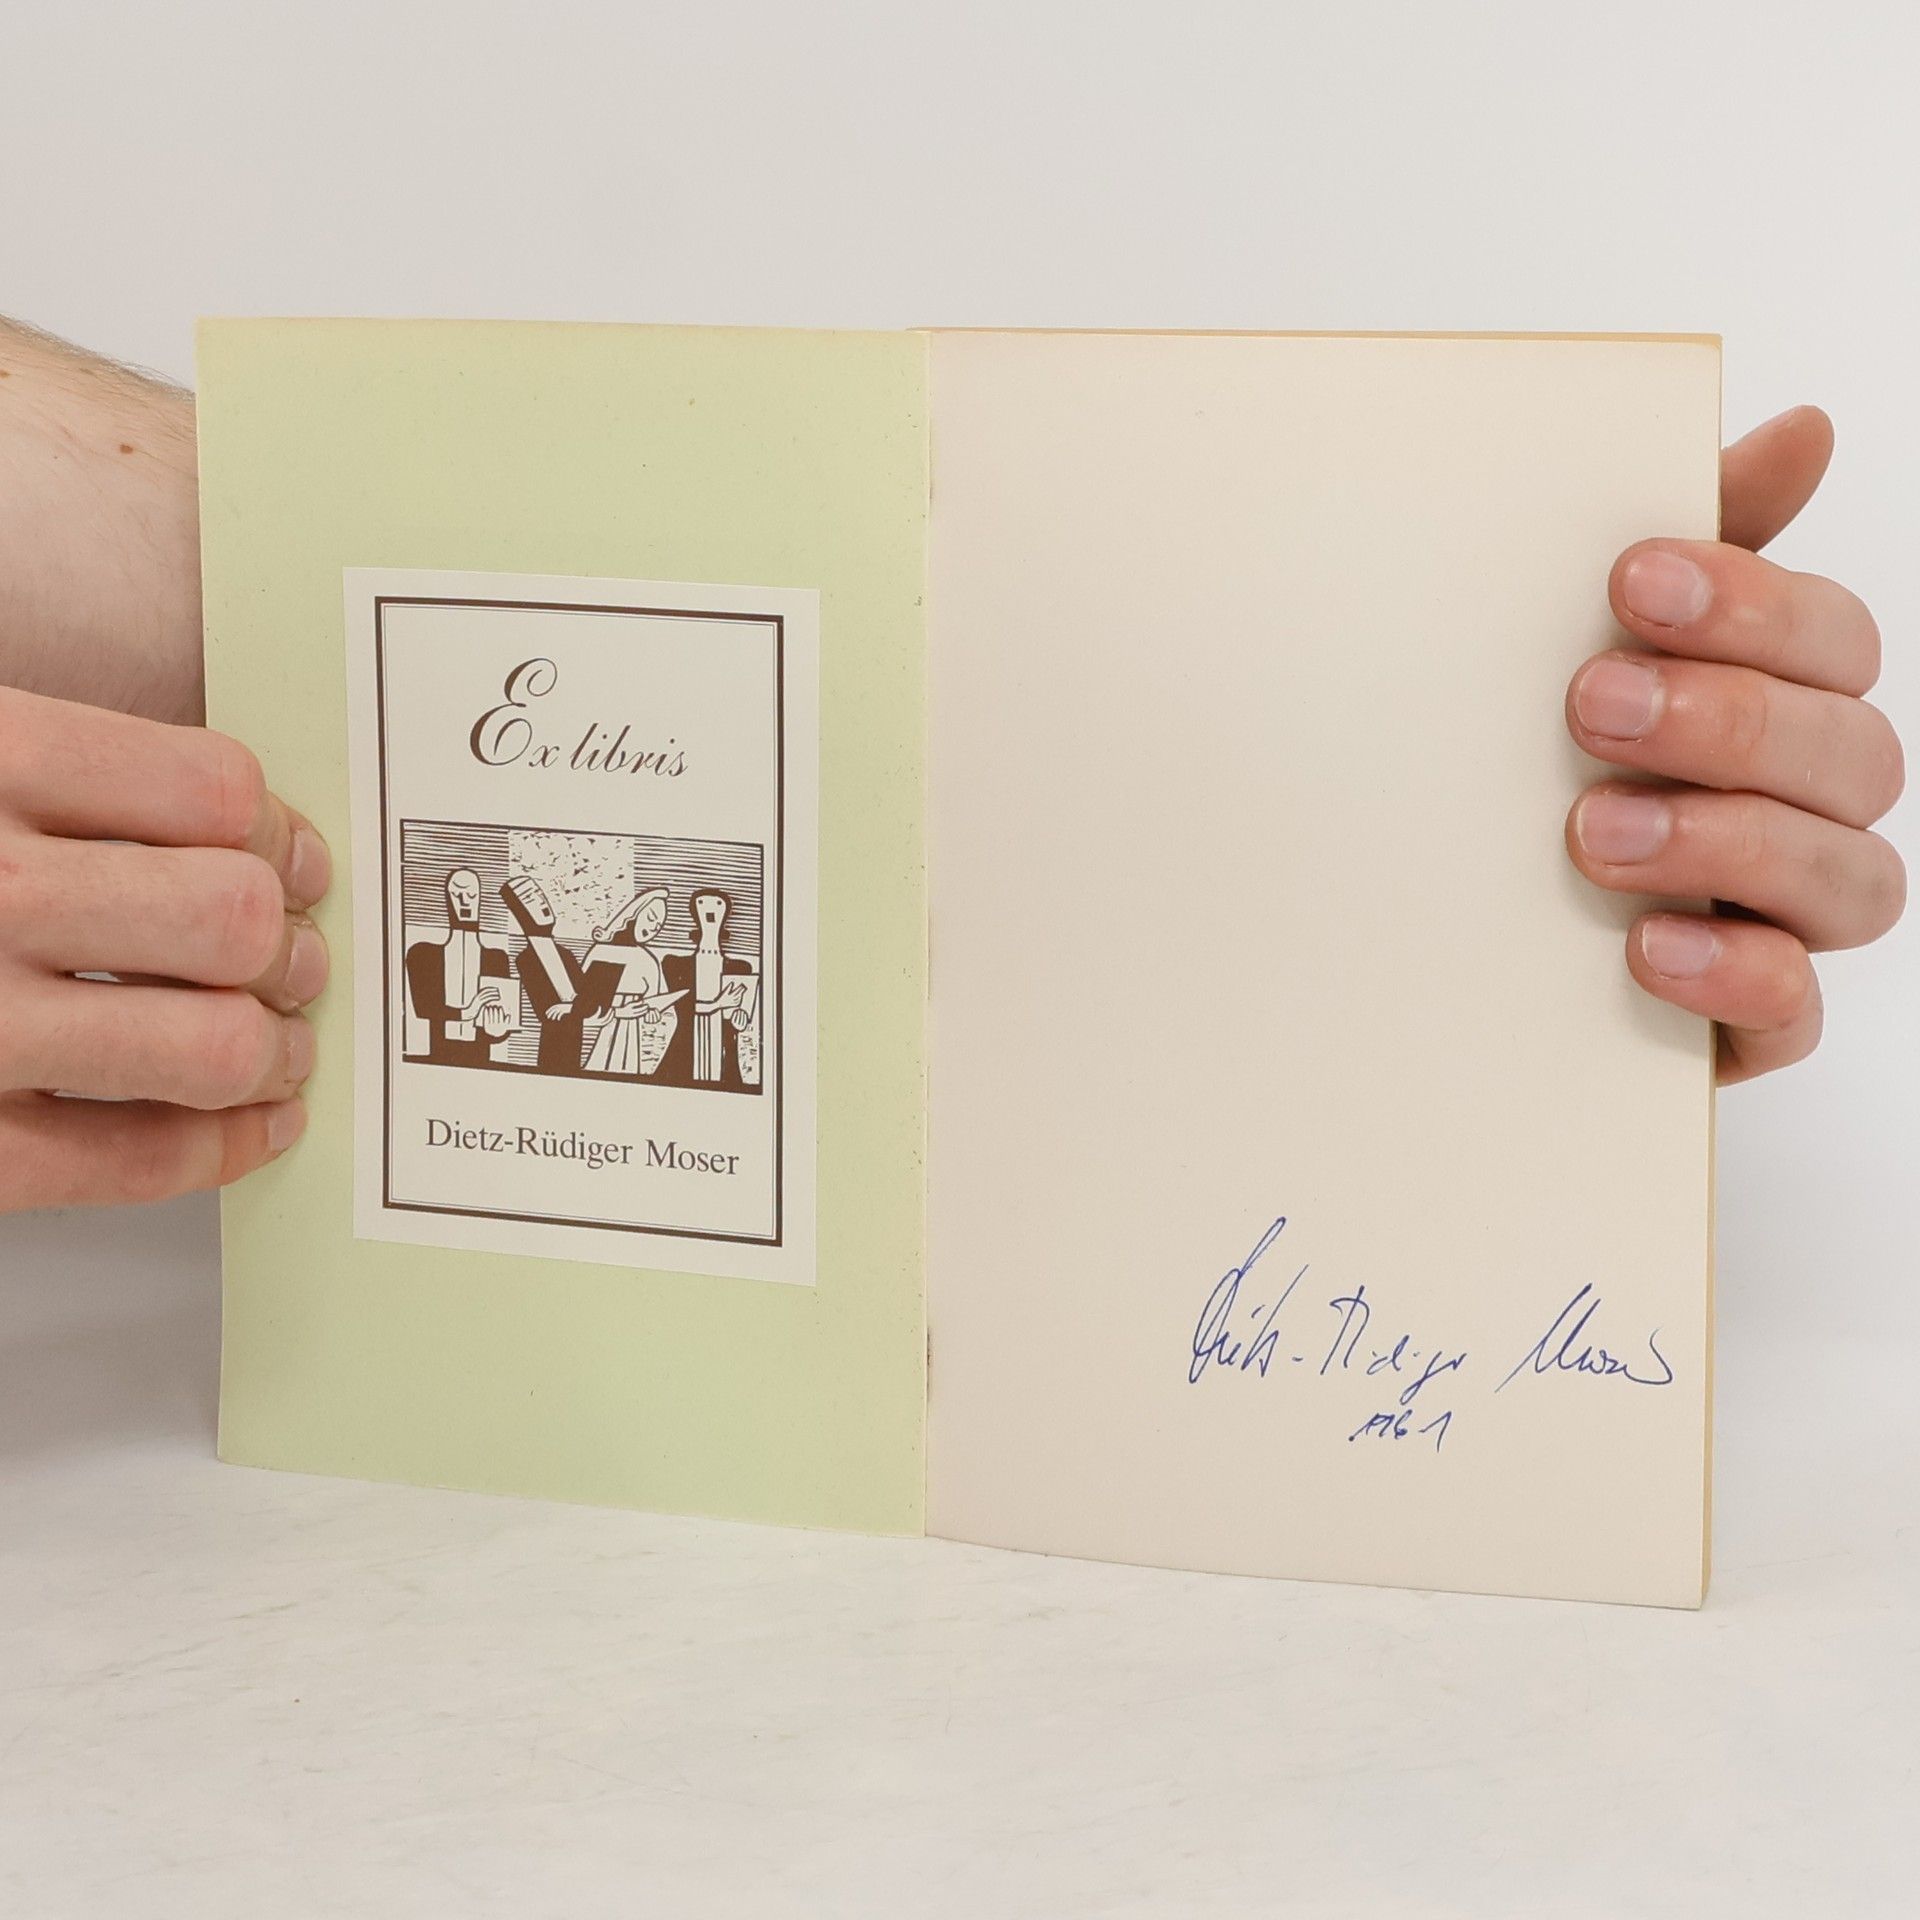 Ex libris
Dietz-Rüdiger Moser
Dietz-Rüdiger Moser